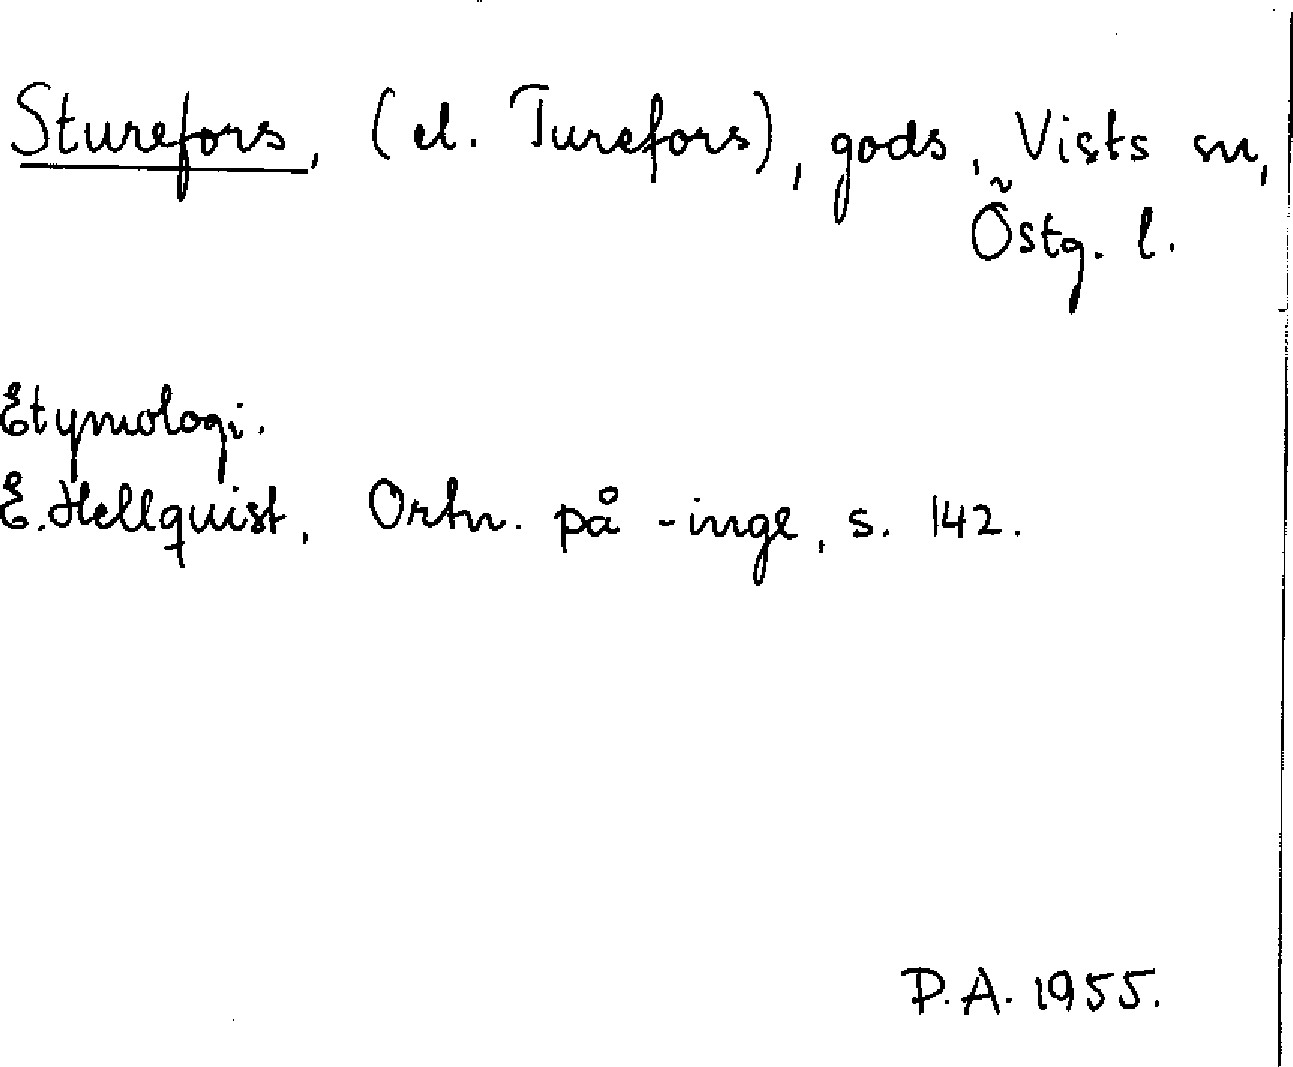 Sturefors, (el. Turefors), gods, Vists sn,
Östg. l.
Etymologi.
E. Hellquist, Ortn. på -inge, s. 142.
P.A. 1955.